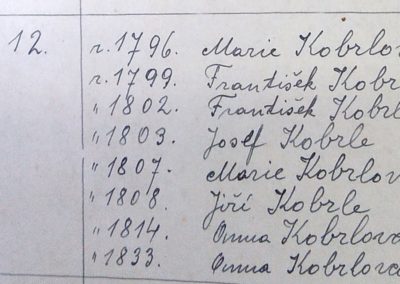 12. r. 1796. Marie Kobrlov
r. 1799. František Kobr
" 1802. František Kobrl
" 1803. Josef Kobrle
" 1807. Marie Kobrlov
" 1808. Jiří Kobrle
" 1814. Anna Kobrlova
" 1833. Anna Kobrlova